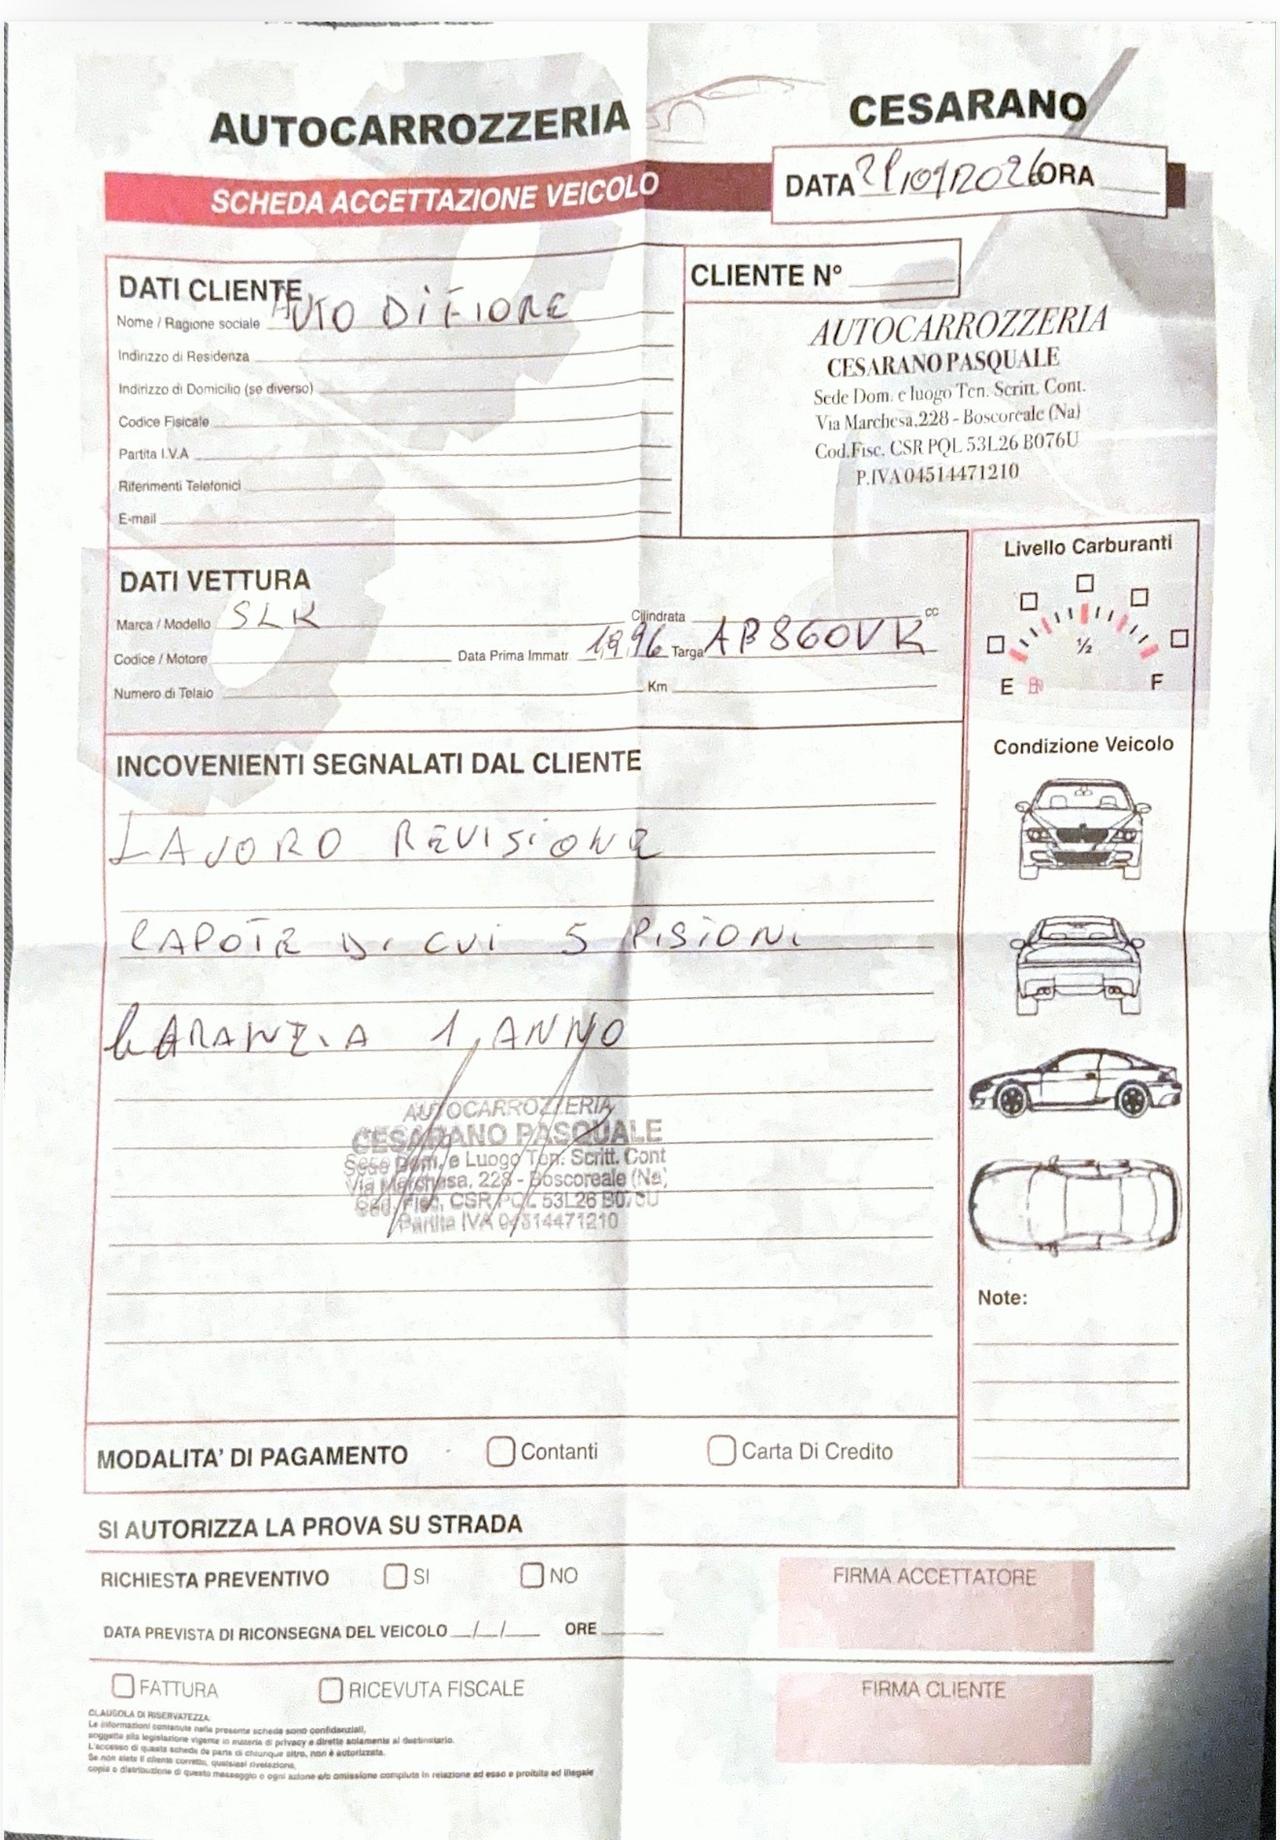 AUTOCARROZZERIA CESARANO
SCHEDA ACCETTAZIONE VEICOLO
DATA 21/01/2026 ORA
DATI CLIENTE
Nome / Ragione sociale AUTO DI FIORE
Indirizzo di Residenza
Indirizzo di Domicilio (se diverso)
Codice Fisicale
Partita I.V.A
Riferimenti Telefonici
E-mail
CLIENTE N°
AUTOCARROZZERIA
CESARANO PASQUALE
Sede Dom. e luogo Ten. Scritt. Cont.
Via Marchesa,228 - Boscoreale (Na)
Cod.Fisc. CSR PQL 53L26 B076U
P.IVA 04514471210
DATI VETTURA
Marca / Modello SLK Cilindrata cc
Codice / Motore Data Prima Immatr. 1996 Targa AP860VK
Numero di Telaio Km
Livello Carburanti
½
E F
INCOVENIENTI SEGNALATI DAL CLIENTE
LAVORO REVISIONE
CAPOTE DI CUI 5 PISTONI
GARANZIA 1 ANNO
AUTOCARROZZERIA
CESARANO PASQUALE
Sede Dom. e Luogo Ten. Scritt. Cont
Via Marchesa, 228 - Boscoreale (Na)
Cod. Fisc. CSR PQL 53L26 B076U
Partita IVA 04514471210
Condizione Veicolo
Note:
MODALITA' DI PAGAMENTO Contanti Carta Di Credito
SI AUTORIZZA LA PROVA SU STRADA
RICHIESTA PREVENTIVO SI NO
DATA PREVISTA DI RICONSEGNA DEL VEICOLO __/__/__ ORE
FIRMA ACCETTATORE
FATTURA RICEVUTA FISCALE
FIRMA CLIENTE
CLAUSOLA DI RISERVATEZZA
Le informazioni contenute nella presente scheda sono confidenziali,
soggette alla legislazione vigente in materia di privacy e dirette solamente al destinatario.
L'accesso di questa scheda da parte di chiunque altro, non è autorizzata.
Se non siete il cliente corretto, qualsiasi rivelazione,
copia o distribuzione di questo messaggio o ogni azione e/o omissione compiuta in relazione ad esso e proibita ed illegale